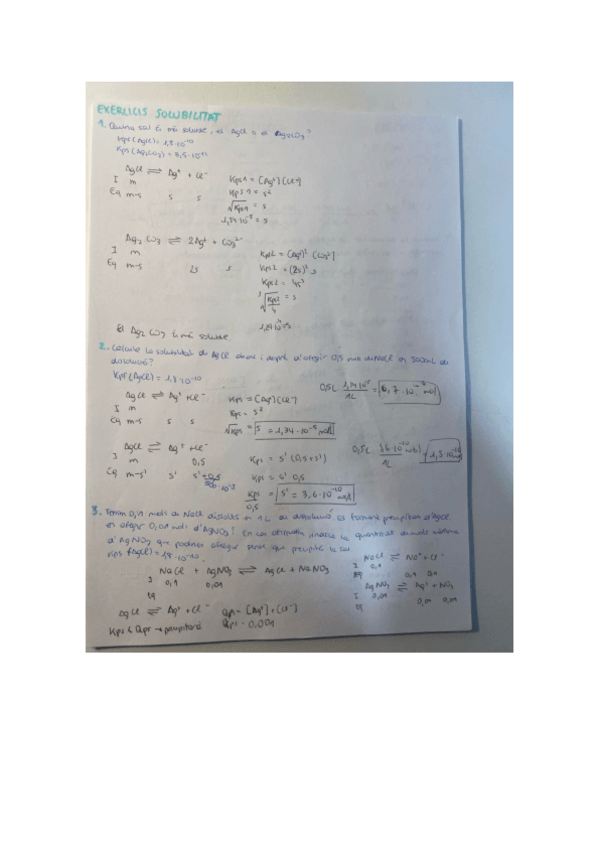 EXERCICIS SOLUBILITAT
1. Quina sal és més soluble, el AgCl o el Ag2CO3?
Kps(AgCl) = 1,8·10⁻¹⁰
AgCl ⇌ Ag⁺ + Cl⁻
I m
Eq m-s s s
Kps1 = [Ag⁺][Cl⁻]
Kps1 = s²
√Kps1 = s
1,34·10⁻⁵ = s
Ag2CO3 ⇌ 2Ag⁺ + CO3²⁻
I m
Eq m-s 2s s
Kps2 = [Ag⁺]² [CO3²⁻]
Kps2 = (2s)² s
Kps2 = 4s³
³√Kps2/4 = s
El Ag2CO3 és més soluble.
2. Calcula la solubilitat de AgCl
dissolució?
Kps(AgCl) = 1,8·10⁻¹⁰
AgCl ⇌ Ag⁺ + Cl⁻
I m
Eq m-s s s
Kps = [Ag⁺][Cl⁻]
Kps = s²
√Kps = s = 1,34·10⁻⁵ mol/L
AgCl ⇌ Ag⁺ + Cl⁻
I m 0,5
Eq m-s' s' s'+0,5
Kps = s' (0,5+s')
Kps = s' 0,5
Kps/0,5 = s' = 3,6·10⁻¹⁰ mol/L
3. Tenim 0,1 mols de NaCl dissolts en 1L de dissolució. Es formarà precipitat d'AgCl
en afegir 0,01 mols d'AgNO3? En cas afirmatiu, indica la quantitat de mols màxima
d'AgNO3 que podries afegir sense que precipiti la sal.
Kps (AgCl) = 1,8·10⁻¹⁰
NaCl + AgNO3 ⇌ AgCl + NaNO3
I 0,1 0,01
Eq
NaCl ⇌ Na⁺ + Cl⁻
I 0,1
Eq 0,1 0,1
AgNO3 ⇌ Ag⁺ + NO3
I 0,01
Eq 0,01 0,01
AgCl ⇌ Ag⁺ + Cl⁻
Kps < Qps → precipitarà
Qps = 0,001